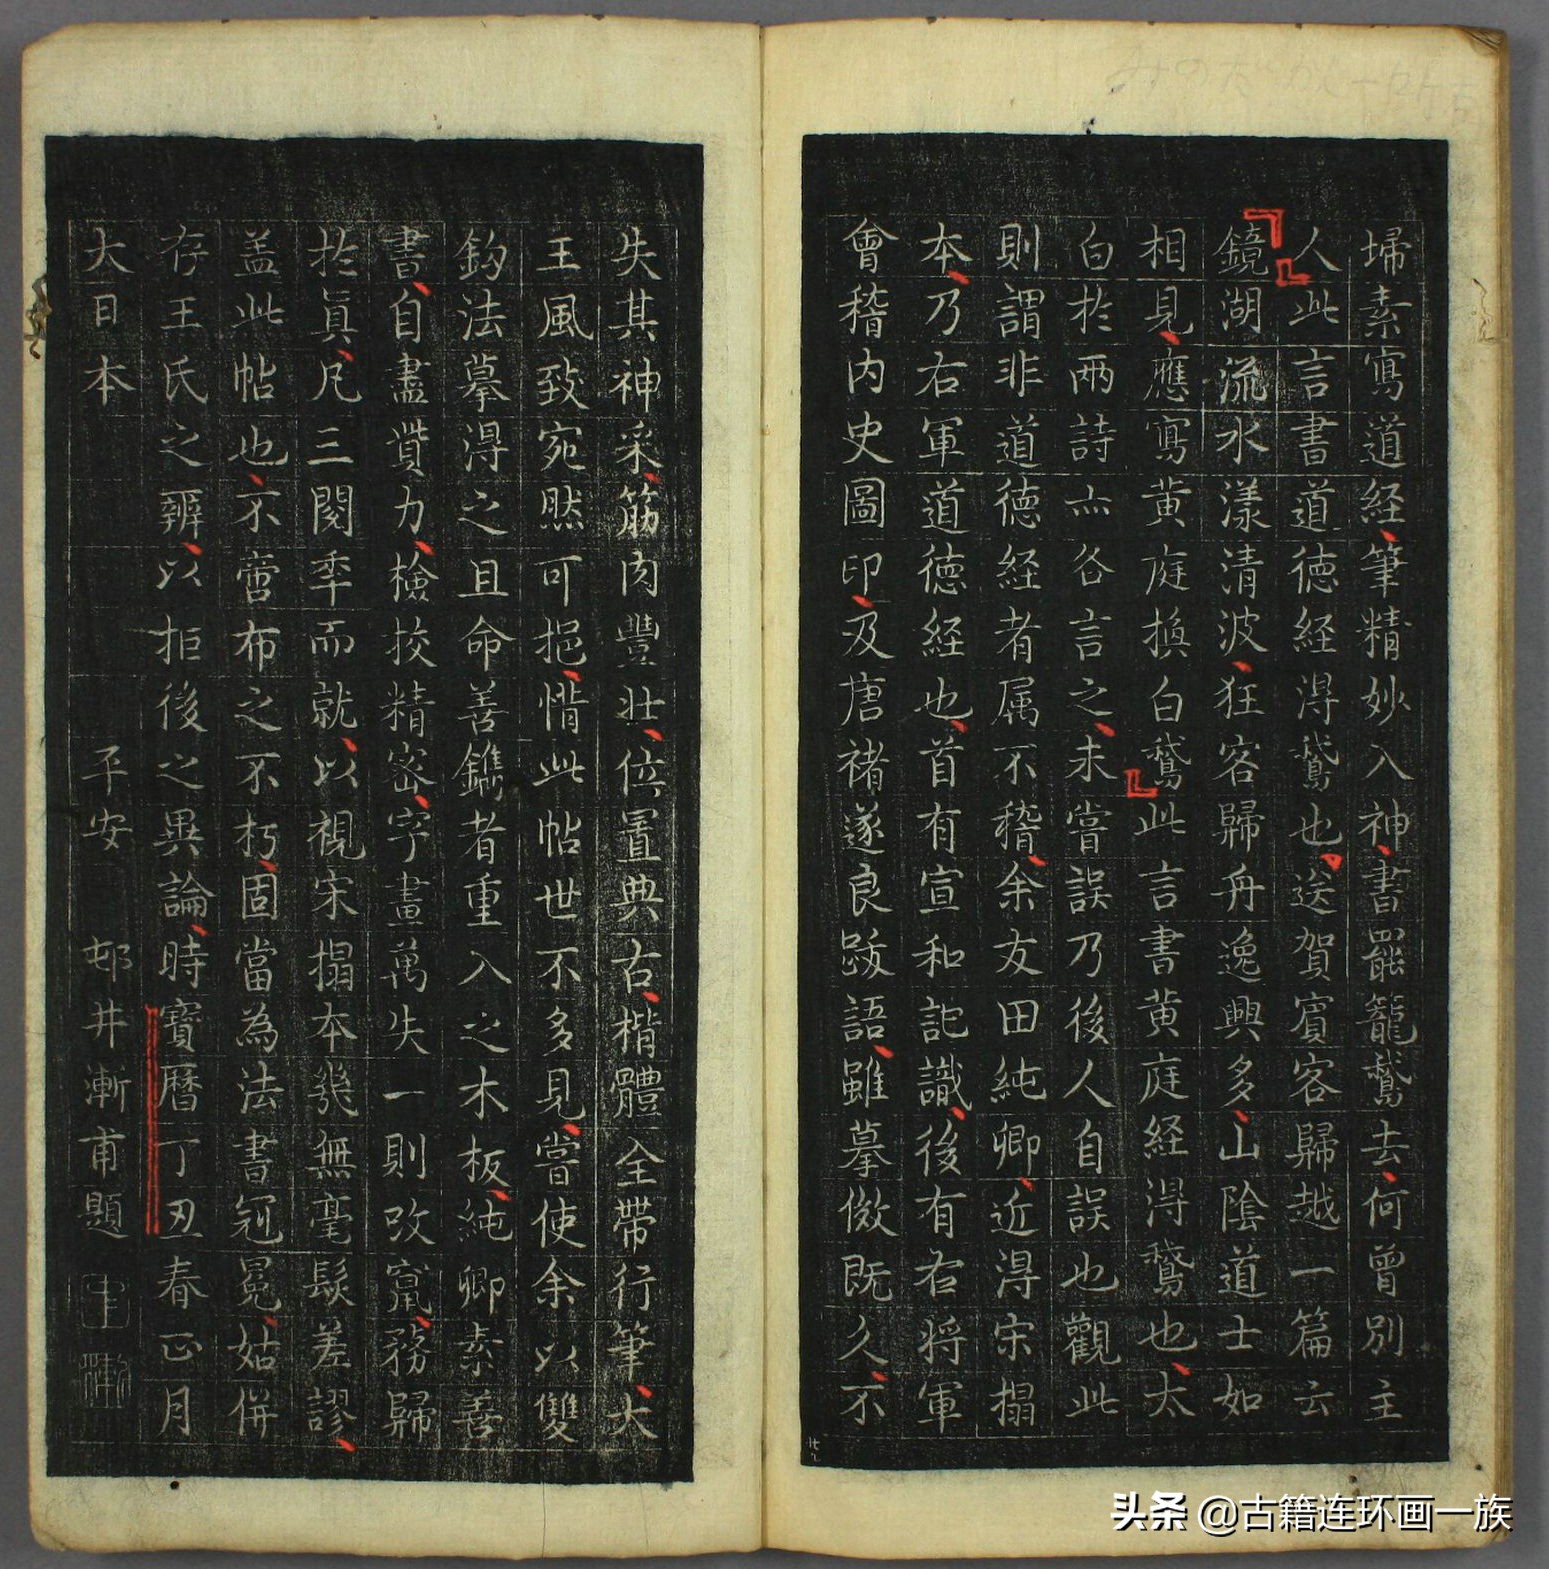 埽素寫道經筆精妙入神書罷籠鵞去何曾別主
人此言書道徳経得鵞也送賀賓客歸越一篇云
鏡湖流水漾清波狂客歸舟逸興多山陰道士如
相見應寫黄庭換白鵞此言書黄庭経得鵞也太
白於兩詩亦各言之未嘗誤乃後人自誤也觀此
則謂非道徳経者属不稽余友田純卿近得宋搨
本乃右軍道徳経也首有宣和記識後有右将軍
會稽内史圖印及唐褚遂良跋語雖摹倣既久不
失其神采筋肉豐壯位置典古楷體全帶行筆大
王風致宛然可挹惜此帖世不多見嘗使余以雙
鈎法摹得之且命善鐫者重入之木板純卿素善
書自盡貲力檢挍精密字畫萬失一則改竄務歸
於真凡三閱季而就以視宋搨本幾無毫髮差謬
盖此帖也不啻布之不朽固當為法書冠冕姑併
存王氏之辯以拒後之異論時寶暦丁丑春正月
大日本 平安 邨井漸甫題
头条 @古籍连环画一族